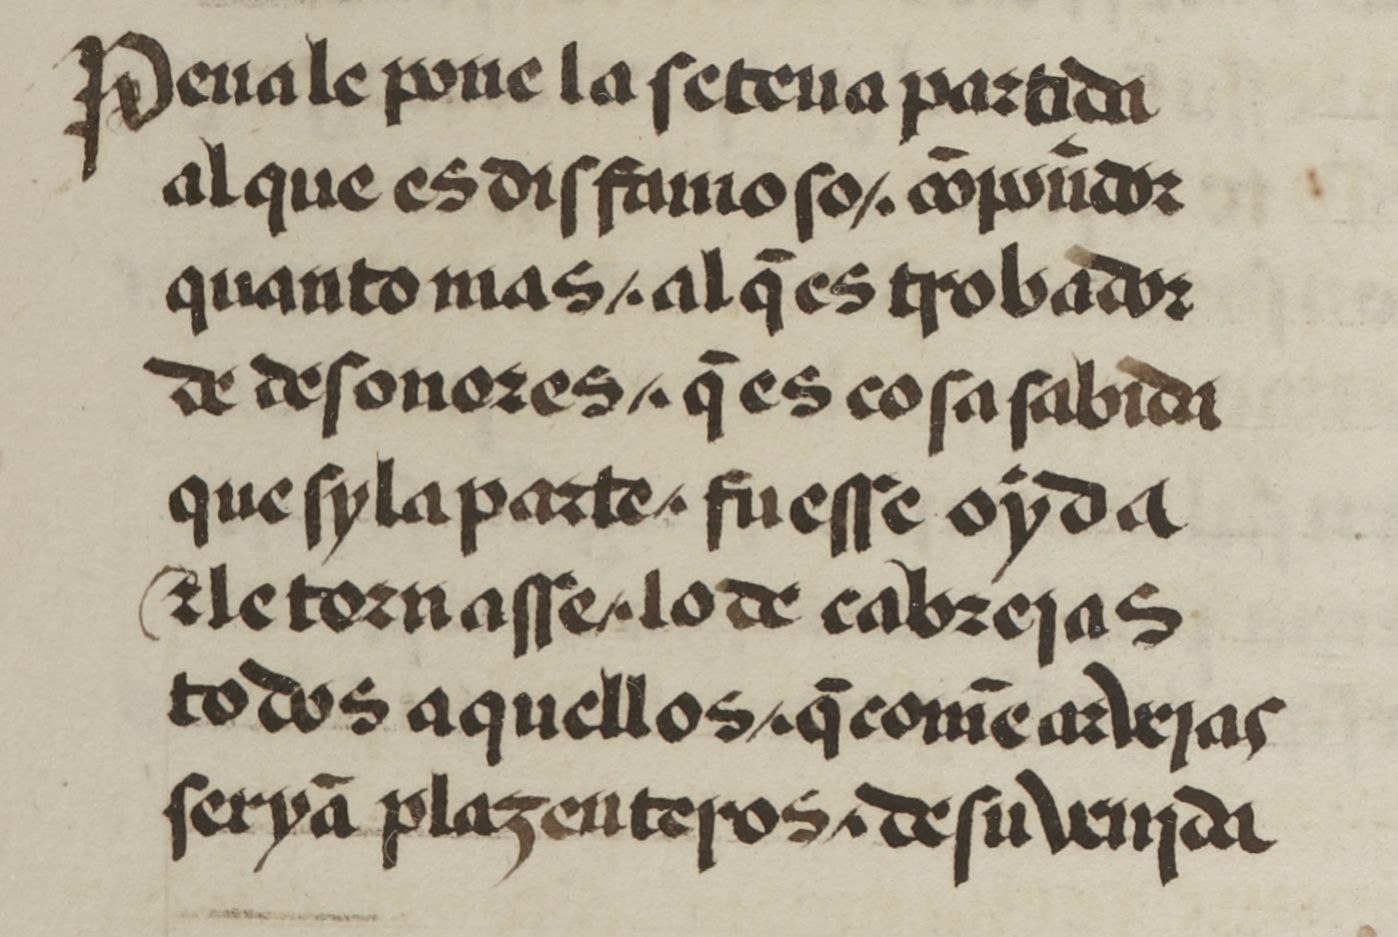 Pena le pone la setena partida
al que es disffamoso /. cōpon̄dor
quanto mas /. al q̄ es trobador
de desonores /. q̄ es cosa sabida
que sy la parte /. fuesse oẏda
⁊ le tornasse /. lo de cabrejas
todos aquellos /. q̄ com̄e arvejas
seryā plazenteros /. de su venjda